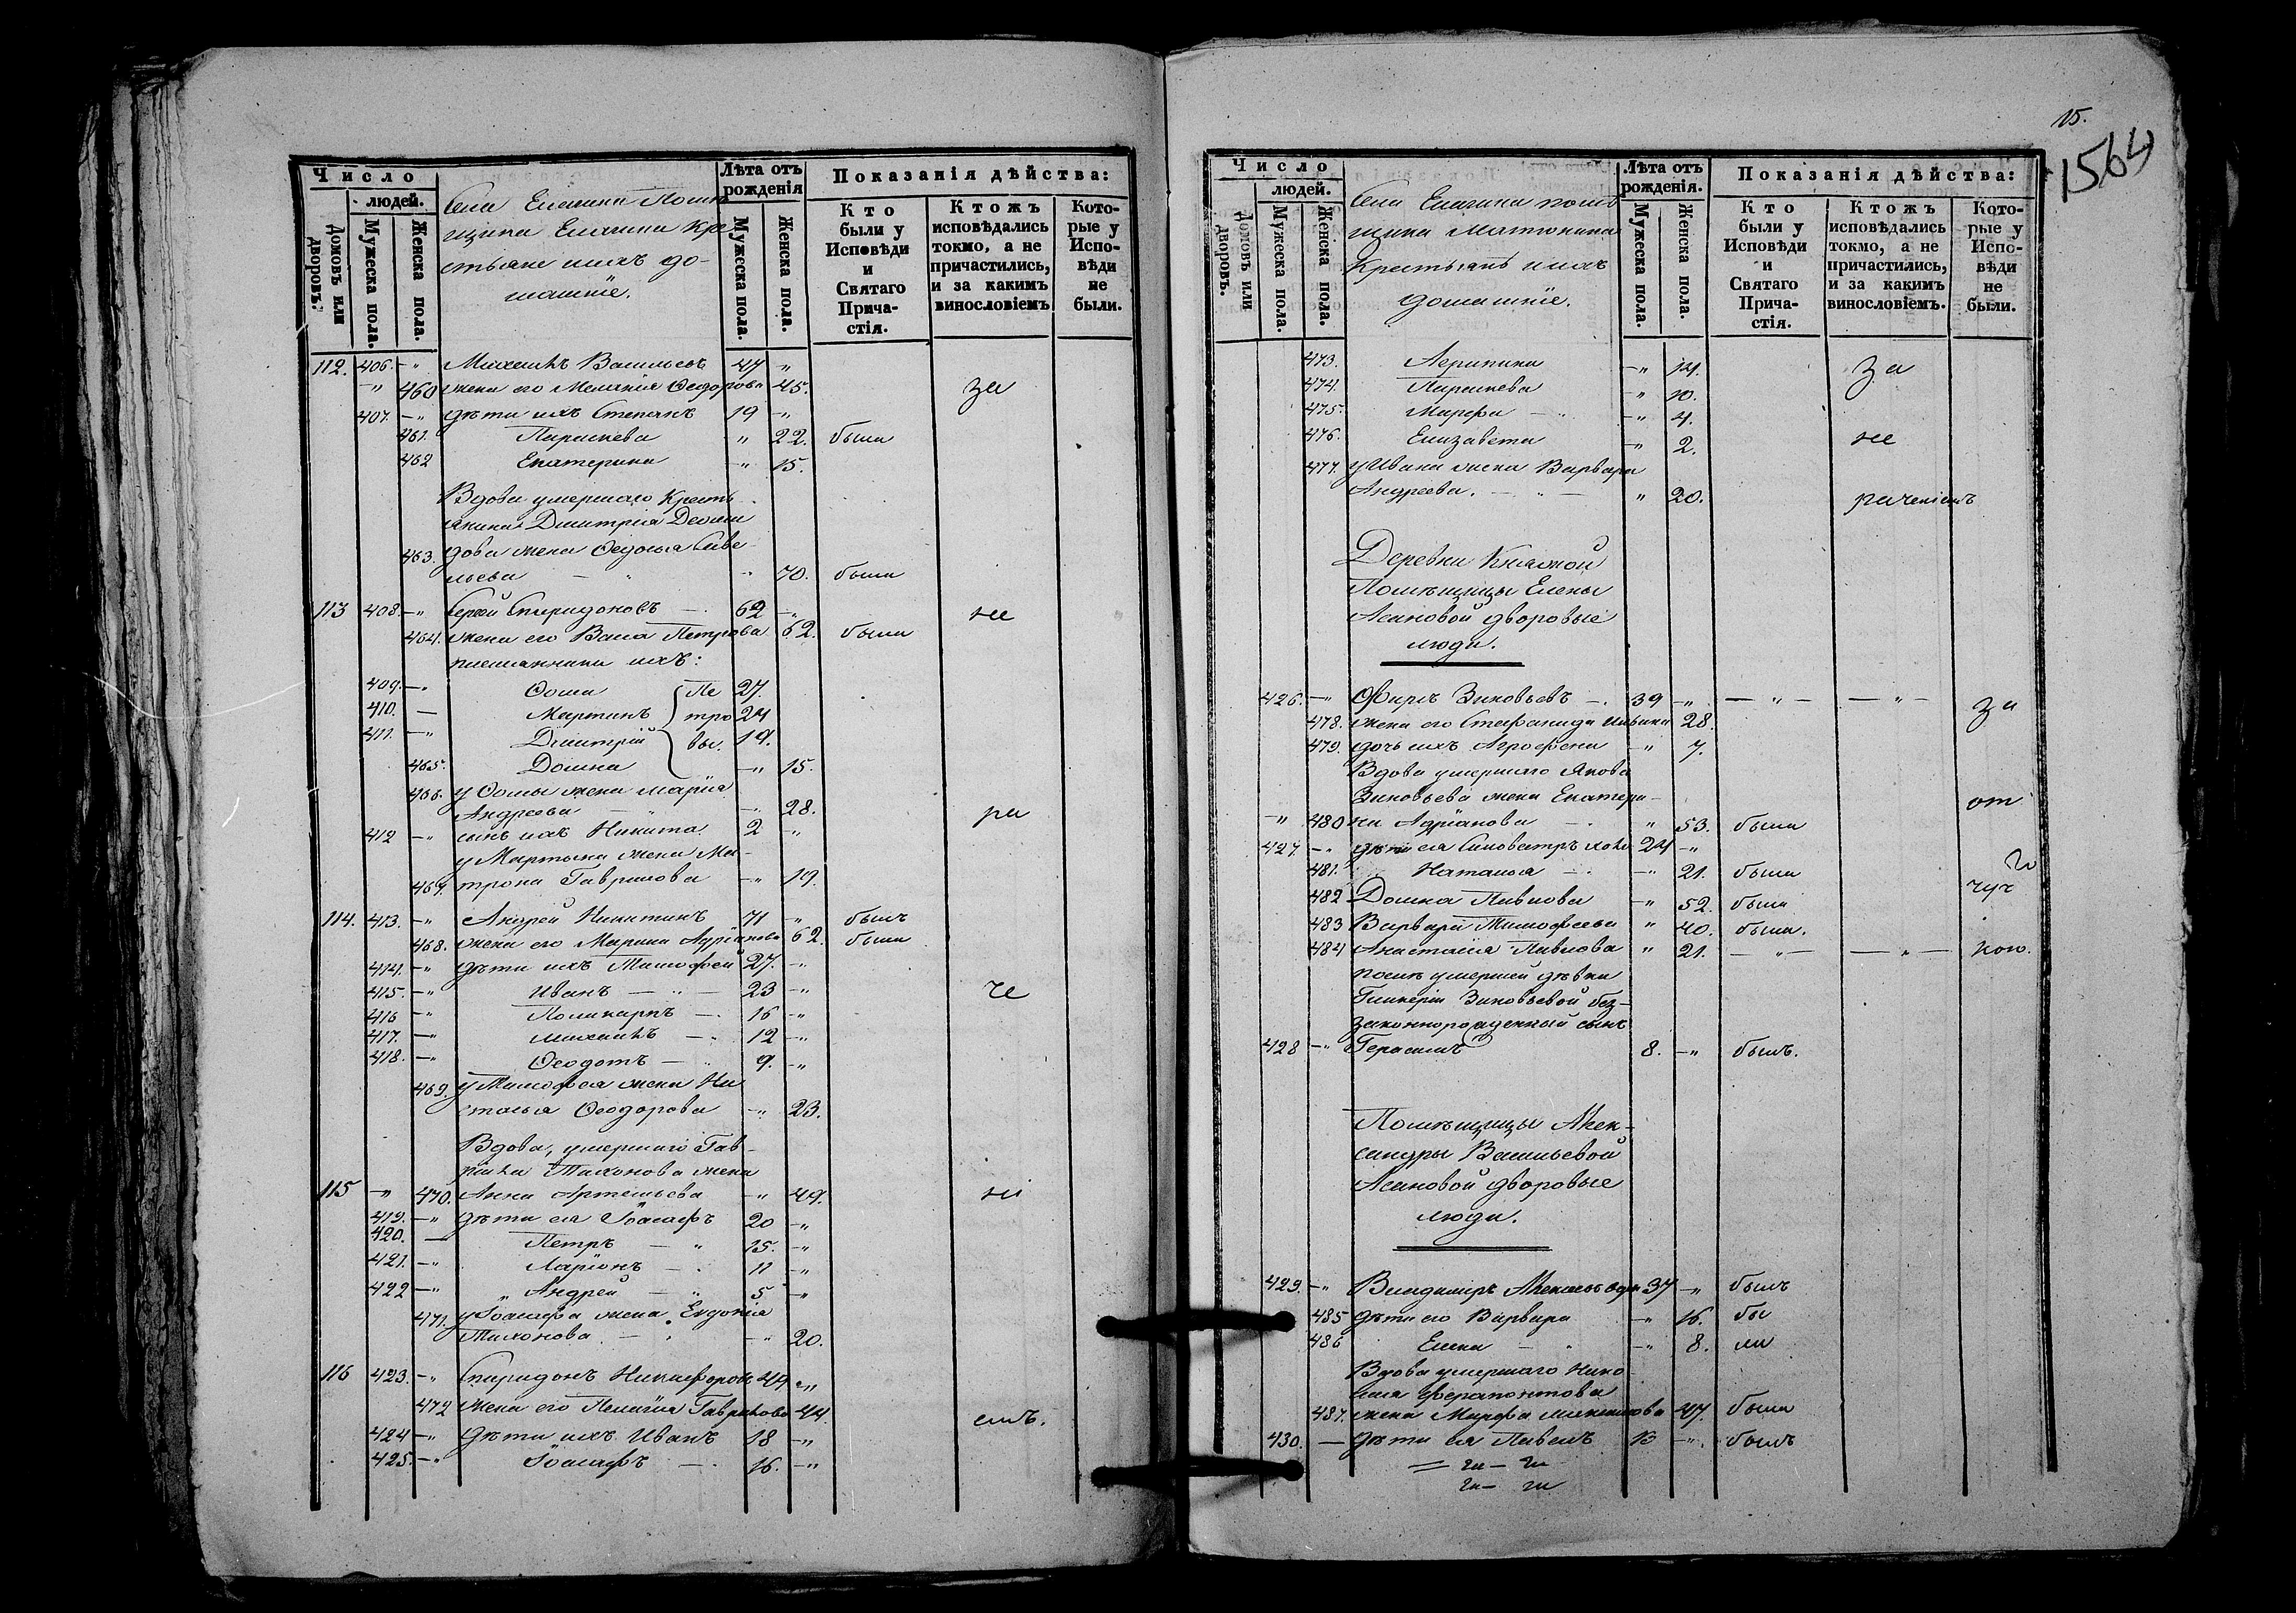 Число
людей.
Домовъ или дворовъ.
Мужеска пола.
Женска пола.
Села Елагина Помѣ
щика Елагина Кре
стьяне и ихъ до-
машніе.
Лѣта отъ рожденія
Мужеска пола.
Женска пола.
Показанія дѣйства:
Кто были у Исповѣди и Святаго Прича-стія.
Ктожъ исповѣдались токмо, а не причастились, и за какимъ винословіемъ
Кото-рые у Испо-вѣди не были.
112. 406. -" Михаилъ Васильевъ 47 "
-" 460 жена его Меланія Ѳеодорова 45. за
407. -" дѣти ихъ Степанъ 19 -"
461. Параскева " 22. была
462 Екатерина -" 15.
Вдова умершаго Кресть
янина Дмитрія
463. дова жена Ѳедосья Саве
льева - " " 70. была
113 408 -" Сергѣй Спиридоновъ - 62 -" не
464. жена его Васса Петрова 62. была
племянники ихъ:
409. -" Ѳома Пе 27.
410. - Мартинъ тро 24
411. -" Дмитрій вы. 19.
465. Домна -" 15.
466. у Ѳомы жена Марія
Андреева - -" 28. ра
412 -" сынъ ихъ Никита. 2 -"
у Мартына жена Ма-
467. трона Гаврилова -" 19.
114. 413. -" Андрей Никитинъ 71 -" былъ
468. жена его Марина Адріанова 62. была
414. -" дѣти ихъ Тимофей 27. -"
415. -" Иванъ - " - 23 -" че
416 -" Поликарпъ - 16 -"
417. -" Михаилъ - 12 -"
418. -" Ѳеодотъ - 9. -"
469. у Тимофея жена На
сталья Ѳеодорова -" 23.
Вдова, умершаго Гав-
ріила Тихонова жена
115 -" 470. Анна Артемьева -" 49. ні
419. -" дѣти ея Іоасафъ 20 -"
420. - Петръ - " 15. -"
421. -" Ларіонъ - 11 -"
422 -" " Андрей - " 5 -"
471. у Іоасафа жена Евдокія
Тихонова - " -" 20.
116 423. -" Спиридонъ Никифоровъ 49 -"
472 жена его Пелагія Гаврилова 44. емъ.
424 -" дѣти ихъ Иванъ 18 -"
425. -" Іоасафъ - 16. -"
15.
1564
Число
людей.
Домовъ или дворовъ.
Мужеска пола.
Женска пола.
Села Елагина помѣ
щика Матюнина
Крестьянъ и ихъ
домашніе.
Лѣта отъ рожденія.
Мужеска пола.
Женска пола.
Показанія дѣйства:
Кто были у Исповѣди и Святаго Прича-стія.
Ктожъ исповѣдались токмо, а не причастились, и за какимъ винословіемъ.
Кото-рые у Испо-вѣди не были.
473. Агрипина -" 14. за
474. Параскева " 10.
475. Марфа - " -" 4.
476. Елизавета -" 2. не
477. у Ивана жена Варвара
Андреева. - " - " 20. раченіемъ
Деревни Княжной
Помѣщицы Елены
Асановой дворовые
люди.
426. -" Фирсъ Зиновьевъ - 39 -" - " - - " - за
478. жена его Стефанида Ильина 28.
479. дочь ихъ Агрофена -" 7.
Вдова умершаго Якова
Зиновьева жена Екатери- от
-" 480 на Адріанова - " 53. была
427. -" дѣти ея Сильвестръ 24 -"
481. Наталья - -" 21. была
482 Домна Павлова -" 52. была
483 Варвара Тимофеева " 40. была.
484 Анастасія Павлова " 21. - " - - " - кою.
послѣ умершей дѣвки
Гликеріи Зиновьевой без-
законнорожденный сынъ
428 -" Герасимъ 8. -" былъ.
Помѣщицы Алек-
сандры Васильевой
Асановой дворовые
люди.
429. -" Владиміръ 37 -" былъ
485 дѣти его Варвара -" 16. бы
486 Елена - " -" 8. ли
Вдова умершаго Нико
лая Ферапонтова
487. жена Марфа 47. была
430. - дѣти ея Павелъ 13 -" былъ